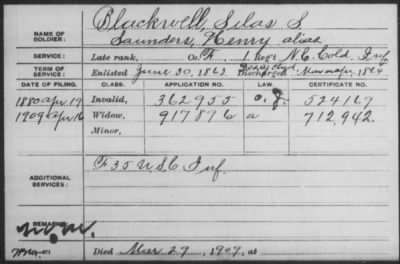 Blackwell, Silas S
NAME OF SOLDIER: Saunders, Henry alias
SERVICE: Late rank, Co. F, 1 Reg't N.C. Cold. Inf
TERM OF SERVICE: Enlisted June 30, 1863 Discharged 1864
DATE OF FILING. CLASS. APPLICATION NO. LAW. CERTIFICATE NO.
1880 Apr 17 Invalid, 362955 G. L. 524167
1909 Apr 16 Widow, 917816 a 712,942.
Minor,
ADDITIONAL SERVICES: F 35 U S C Inf.
REMARKS:
Died Mar 27, 1907, at